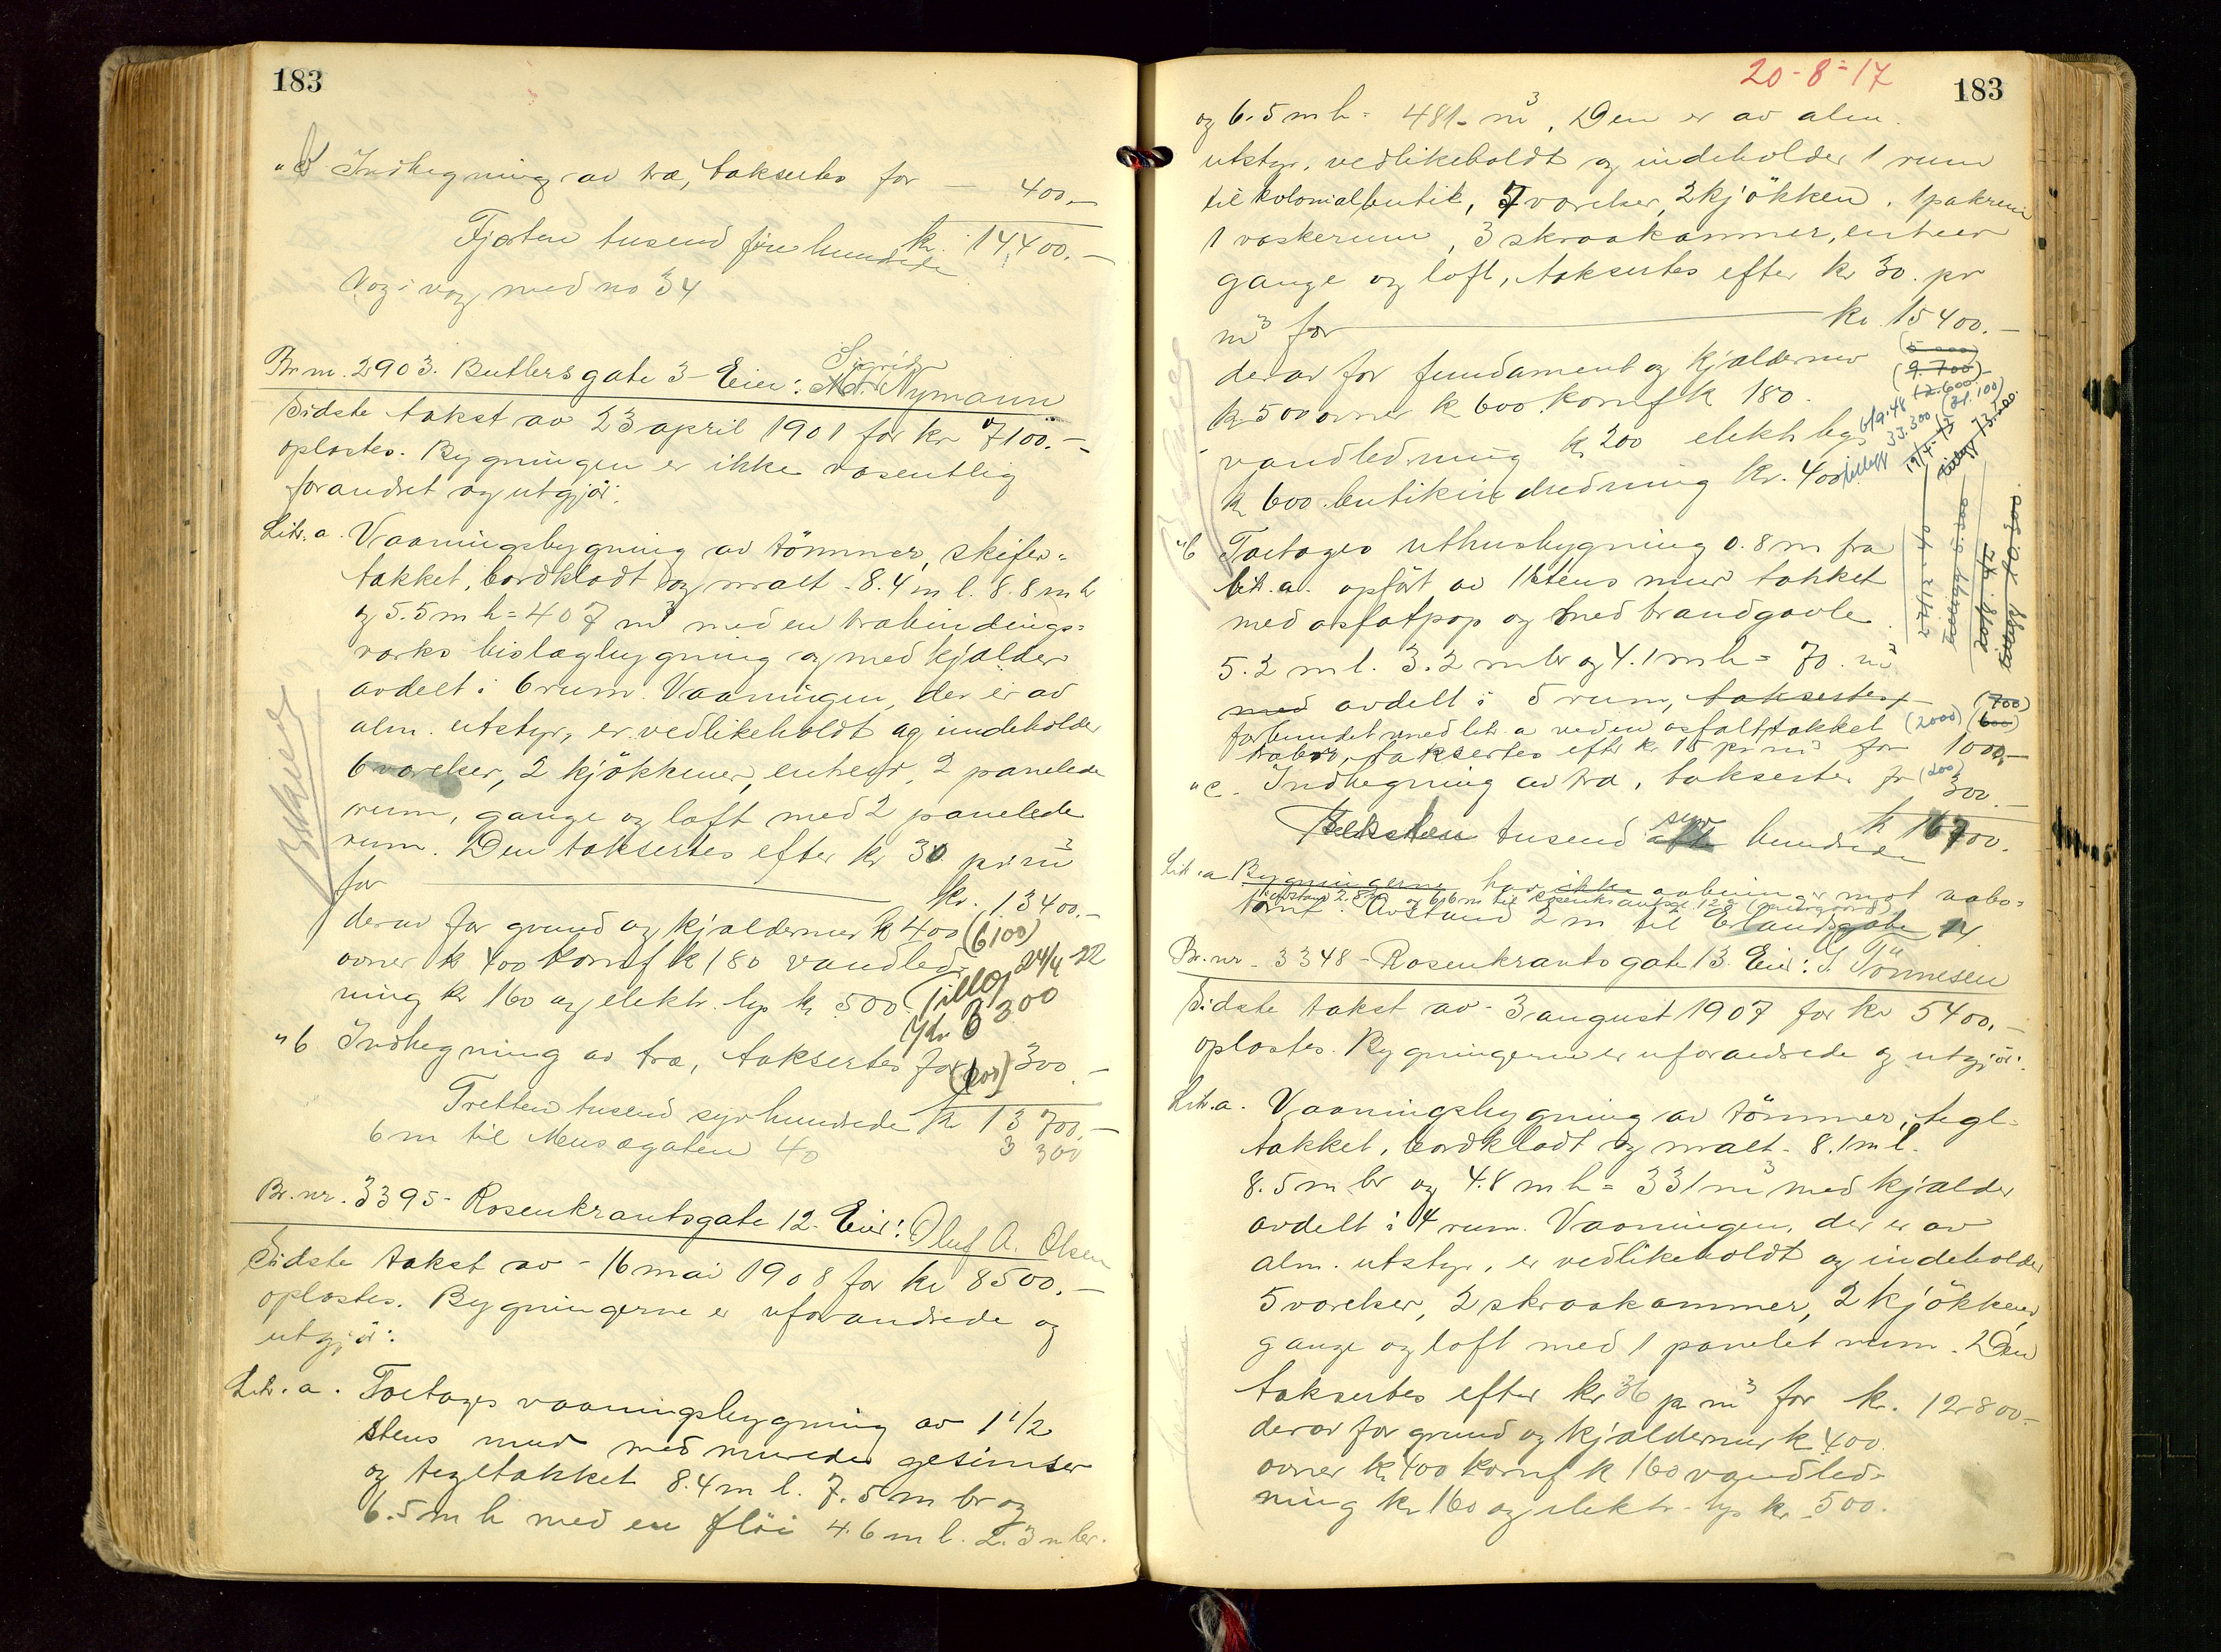 183
"d Indhegning av træ, takseres for — 400.—
Fjorten tusend fire hundrede kr. 14,400.—
Væg i væg med no 34
Br. nr. 2903. Butlers gate 3 - Eier: Sigrid Nymann
Sidste takst av 23 april 1901 for kr 7100.—
oplæstes. Bygningen er ikke væsentlig
forandret og utgjør:
Litr. a. Vaaningsbygning av tömmer, skifer=
tækket, bordklædt og malt - 8.4 m l. 8.8 m br
og 5.5 m h = 407 m³ med en træbindings=
verks bislagbygning og med kjælder
avdelt i 6 rum. Vaaningen, der er av
alm. utstyr, er vedlikeholdt og indeholder
6 værelser, 2 kjökkener, entreer, 2 panelede
rum, gange og loft med 2 panelede
rum. Den taksertes efter kr 30 pr m³
for — kr. 13400.—
derav for grund og kjældermur kr 400 (6100)
ovner kr 400 komf kr 180 vandled=
ning kr 160 og elektr. lys kr 500. Tillæg 24/4 22
kr 3300
"b Indhegning av træ, taksertes for 300.—
(200)
Tretten tusend syvhundrede kr 13 700.—
6 m til Musægaten 40 3 300
Br. nr. 3395 - Rosenkrantsgate 12. Eier: Oluf A. Olsen
Sidste takst av - 16 mai 1908 for kr 8500.—
oplæstes. Bygningerne er uforandrede og
utgjør:
Litr. a. Toetages vaaningsbygning av 1 1/2
stens mur med murede gesimser
og tegltækket 8.4 m l. 7.5 m br og
6.5 m h med en flöi 4.6 m l. 2.3 m br.
20-8-17
183
og 6.5 m h = 481 - m³. Den er av alm.
utstyr, vedlikeholdt og indeholder 1 rum
til kolonialbutik, 7 værelser, 2 kjökken, 1 pakrum
1 vaskerum, 3 skraakammer, entreer
gange og loft, taksertes efter kr 30. pr
m³ for — kr. 15400.—
(9.700)
derav for fundament og kjældermur
kr 500 ovner kr 600. komf kr 180.
vandledning kr 200 elektr lys
kr 600. butikindredning kr. 400
"b Toetages uthusbygning 0.8 m fra
litr. a. opført av 1 stens mur tækket
med asfaltpap og med brandgavle.
5.2 m l. 3.2 m br og 4.1 m h = 70. m³
med avdelt i 5 rum, taksertes (700)
forbundet med litr. a ved en asfalttækket (2000) (600)
træbro, taksertes eftr kr. 15 pr m³ for 1000.—
"c. Indhegning av træ, taksertes for (200) 300.—
Seksten tusend syv hundrede kr 16700.
Litr. a Bygningerne har ikke aabninger mot nabo=
tomt. Avstand 2 m til Erlandsgate 14.
Br. nr. 3348 - Rosenkrants gate 13. Eier: G. Tönnesen
Sidste takst av - 3 august 1907 for kr 5400.—
oplæstes. Bygningerne er uforandrede og utgjør:
Litr. a. Vaaningsbygning av tömmer, tegl=
tækket, bordklædt og malt - 8.1 m l.
8.5 m br og 4.8 m h = 331 m³ med kjælder
avdelt i 4 rum. Vaaningen, der er av
alm. utstyr, er vedlikeholdt og indeholder
5 værelser, 2 skraakammer, 2 kjökkener
gange og loft med 1 panelet rum. Den
taksertes efter kr 36 pr m³ for kr. 12800.—
derav for grund og kjældermur kr 400.
ovner kr 400 komf kr 160 vandled=
ning kr 160 og elektr. lys kr 500.